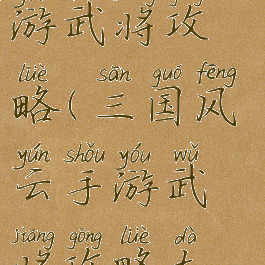 游武将攻
lüè sān guó fēng
略(三国风
yún shǒu yóu wǔ
云手游武
jiāng gōng lüè dà
将攻略大